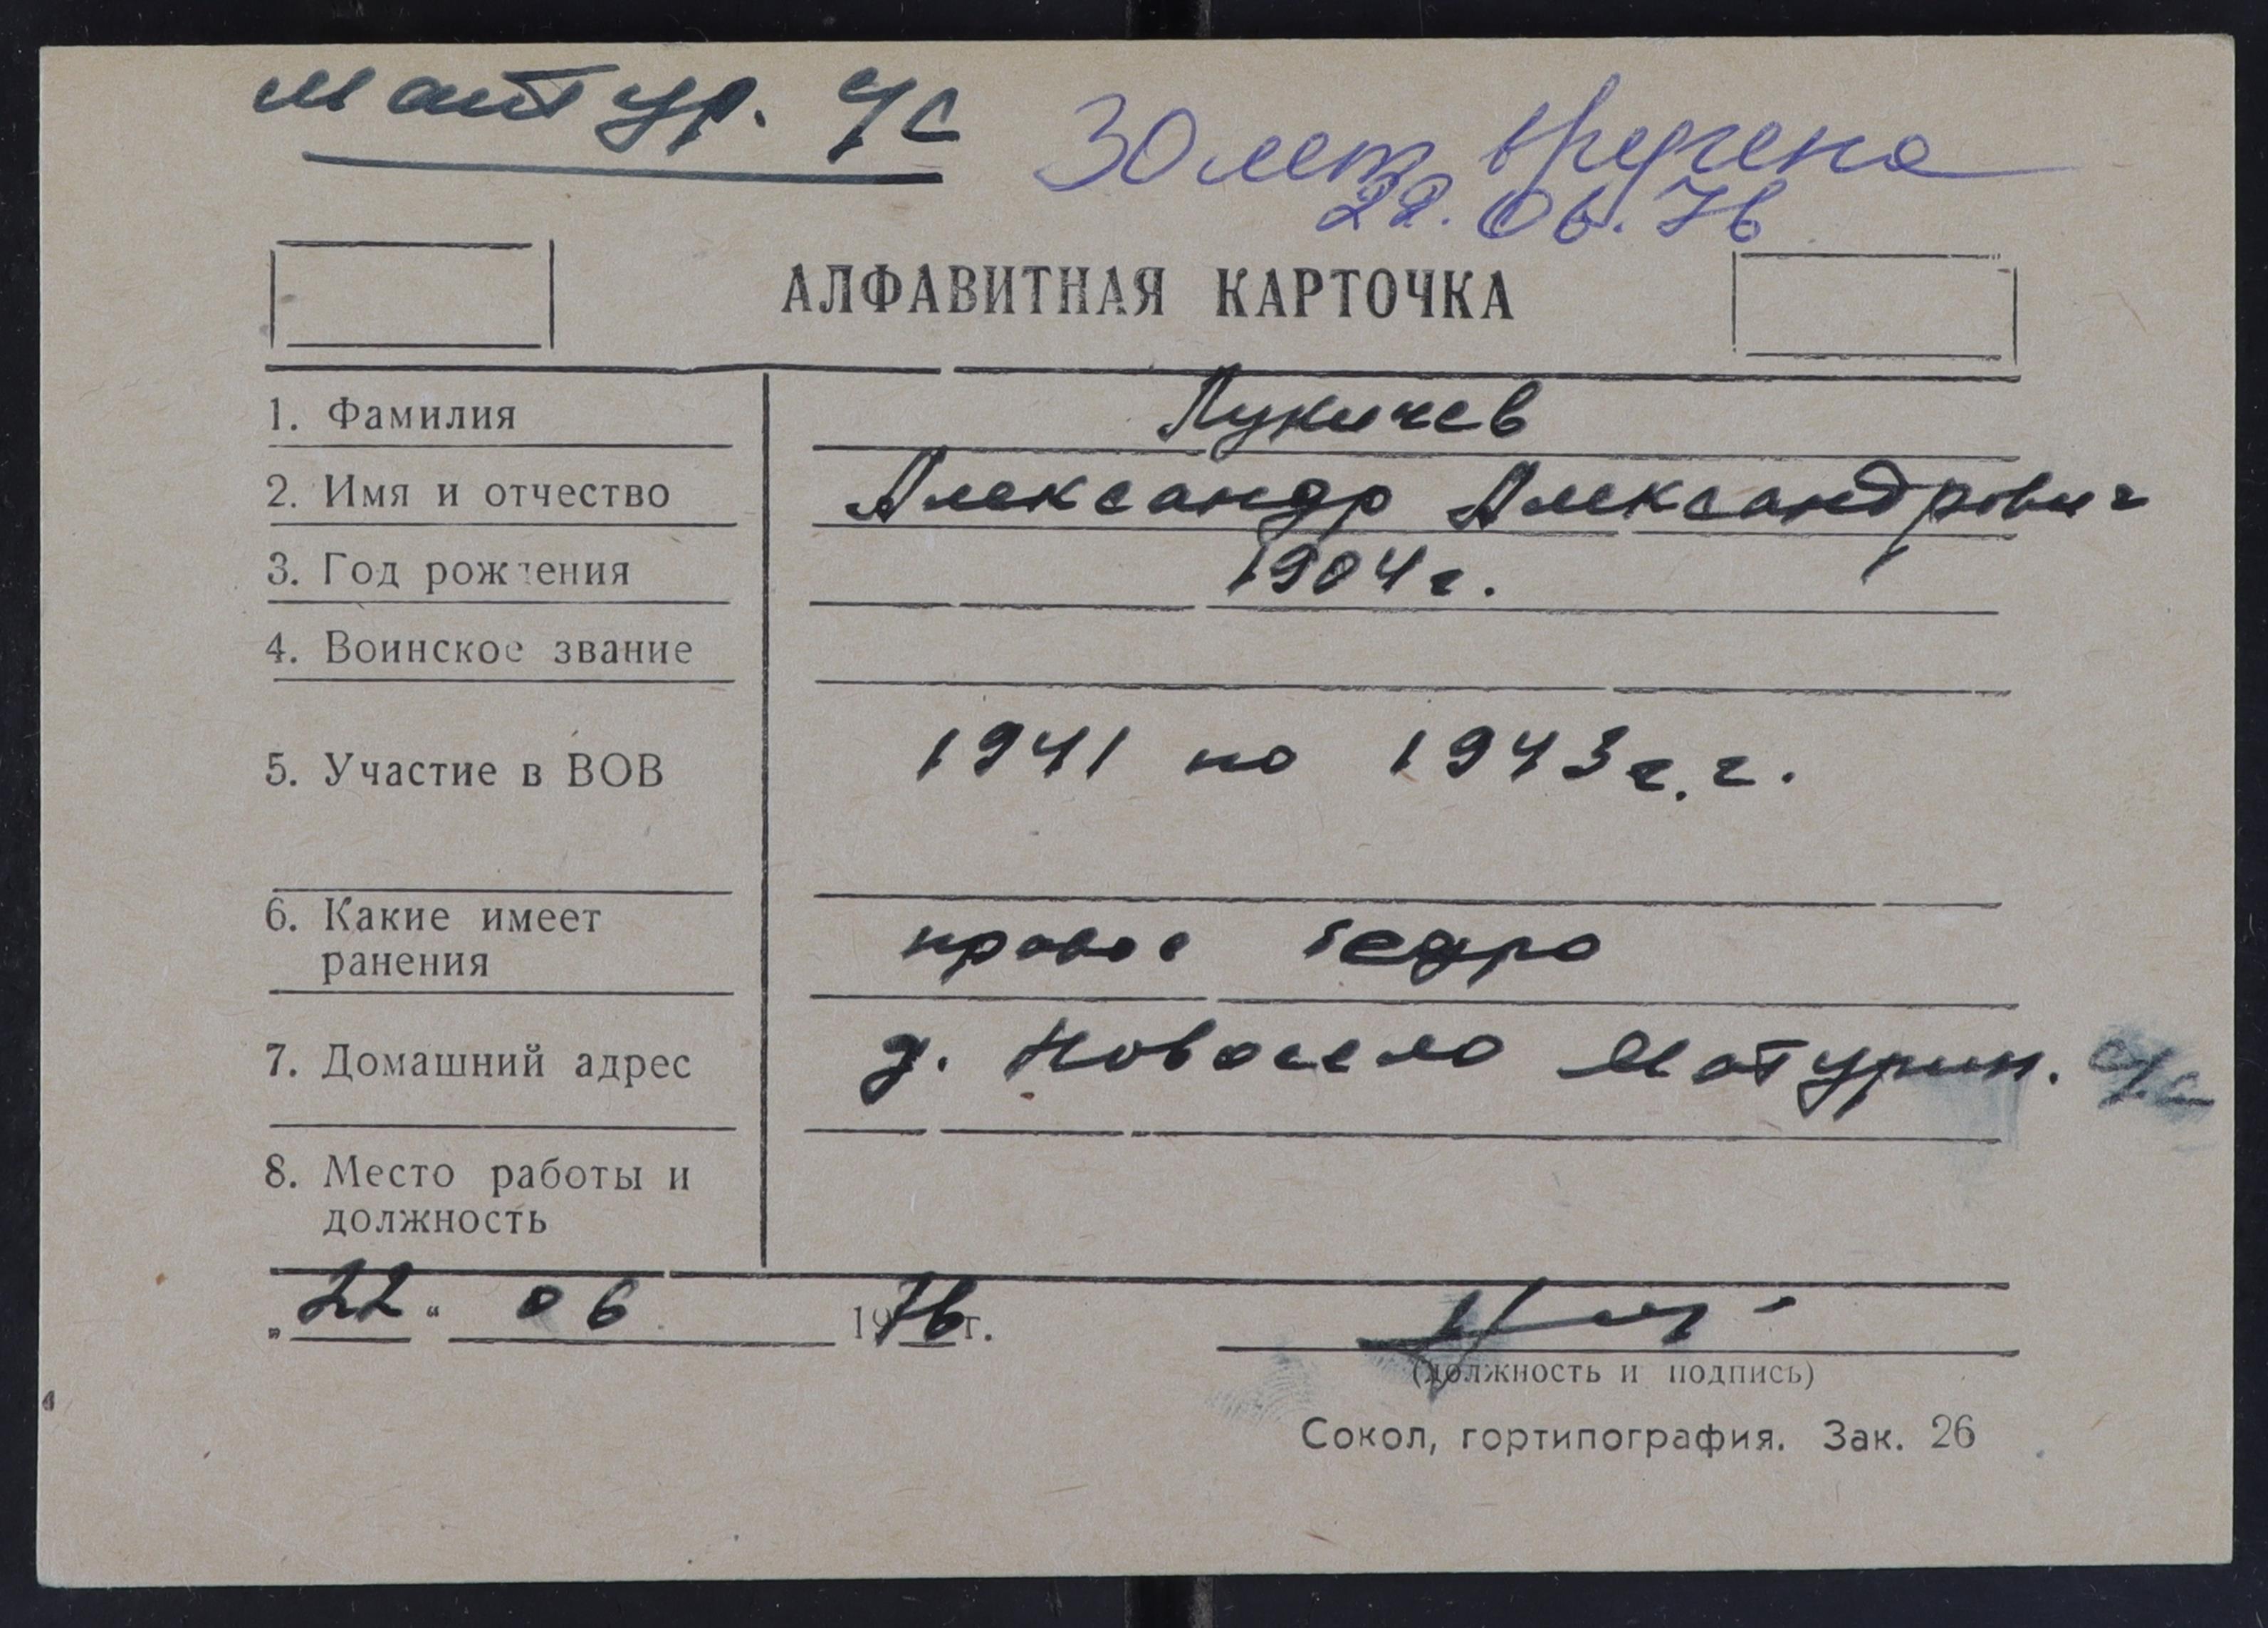 Матур. с/с
30 лет вручена
22.06.76
АЛФАВИТНАЯ КАРТОЧКА
1. Фамилия Лукичев
2. Имя и отчество Александр Александрович
3. Год рождения 1904 г.
4. Воинское звание
5. Участие в ВОВ 1941 по 1943 г.г.
6. Какие имеет
ранения правое бедро
7. Домашний адрес д. Новосело Матурин. с/с
8. Место работы и
должность
„22“ 06 1976 г.
(должность и подпись)
Сокол, гортипография. Зак. 26